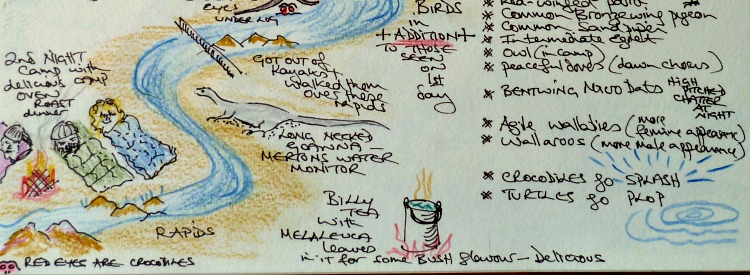 EYES
UNDER LOG
BIRDS
in
+ ADDITION +
TO THOSE
SEEN
on
1st
day
* Red-winged parrot
* Common Bronzewing pigeon
* Common Sandpiper
* Intermediate Egret
* Owl (in camp)
* peaceful doves (dawn chorus)
* BENTWING Micro bats HIGH
PITCHED
CHATTER
AT
NIGHT
* Agile wallabies (more
feminine appearance)
* Wallaroos (more male appearance)
* CROCODILES go SPLASH
* TURTLES go PLOP
2nd NIGHT
Camp with
delicious camp
oven
ROAST
dinner
GOT OUT OF
Kayaks +
walked them
over these
rapids
LONG NECKED
GOANNA –
MERTONS WATER
MONITOR
BILLY
TEA
with
MELALEUCA
leaves
in it for some BUSH flavour – Delicious
RAPIDS
RED EYES ARE CROCODILES